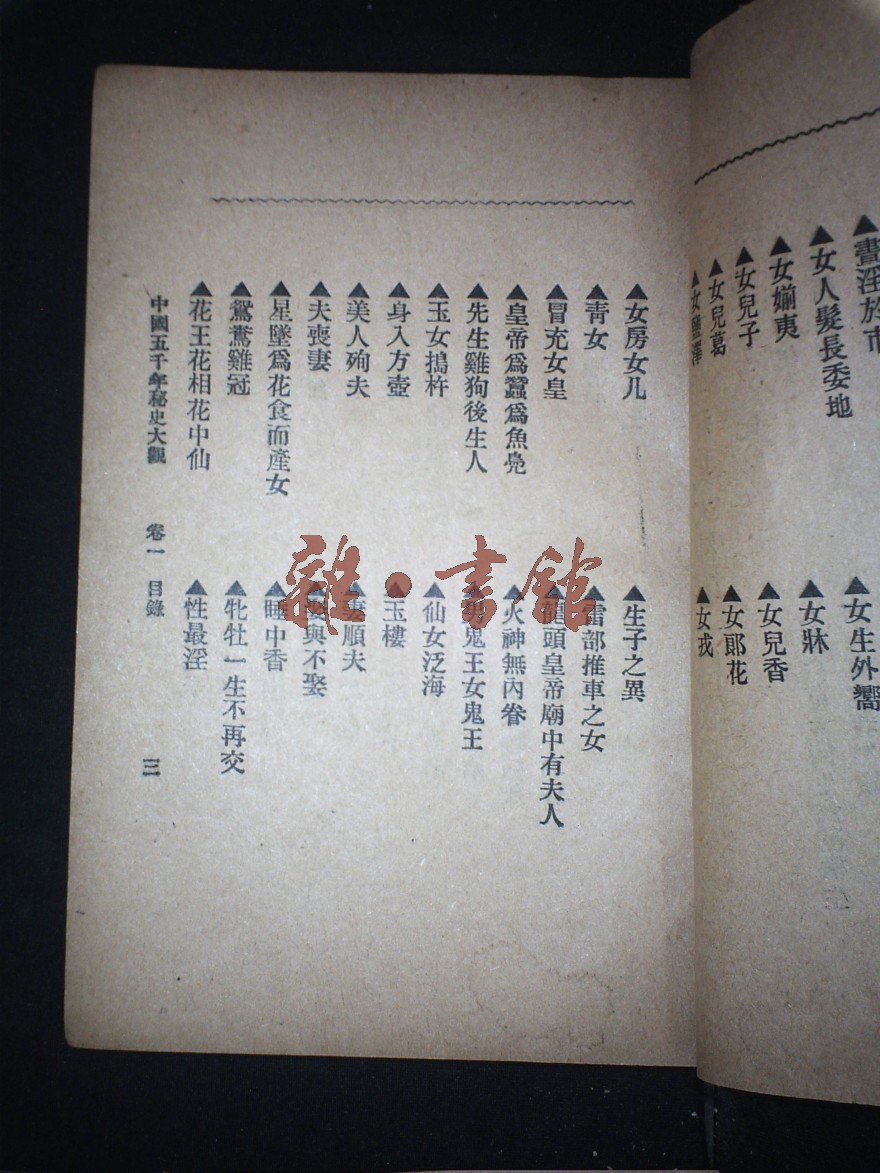 ▲晝淫於市
▲女人髮長委地
▲女媊夷
▲女兒子
▲女兒葛
▲女生外嚮
▲女牀
▲女兒香
▲女郎花
▲女戎
▲女房女几
▲靑女
▲冒充女皇
▲皇帝爲蠶爲魚鳧
▲先生雞狗後生人
▲玉女搗杵
▲身入方壺
▲美人殉夫
▲夫喪妻
▲星墜爲花食而產女
▲鴛鴦雞冠
▲花王花相花中仙
▲生子之異
▲雷部推車之女
▲龍頭皇帝廟中有夫人
▲火神無內眷
▲男鬼王女鬼王
▲仙女泛海
▲玉樓
▲妻順夫
▲娶與不娶
▲睡中香
▲牝牡一生不再交
▲性最淫
中國五千年秘史大觀 卷一 目錄 三
雜·書館